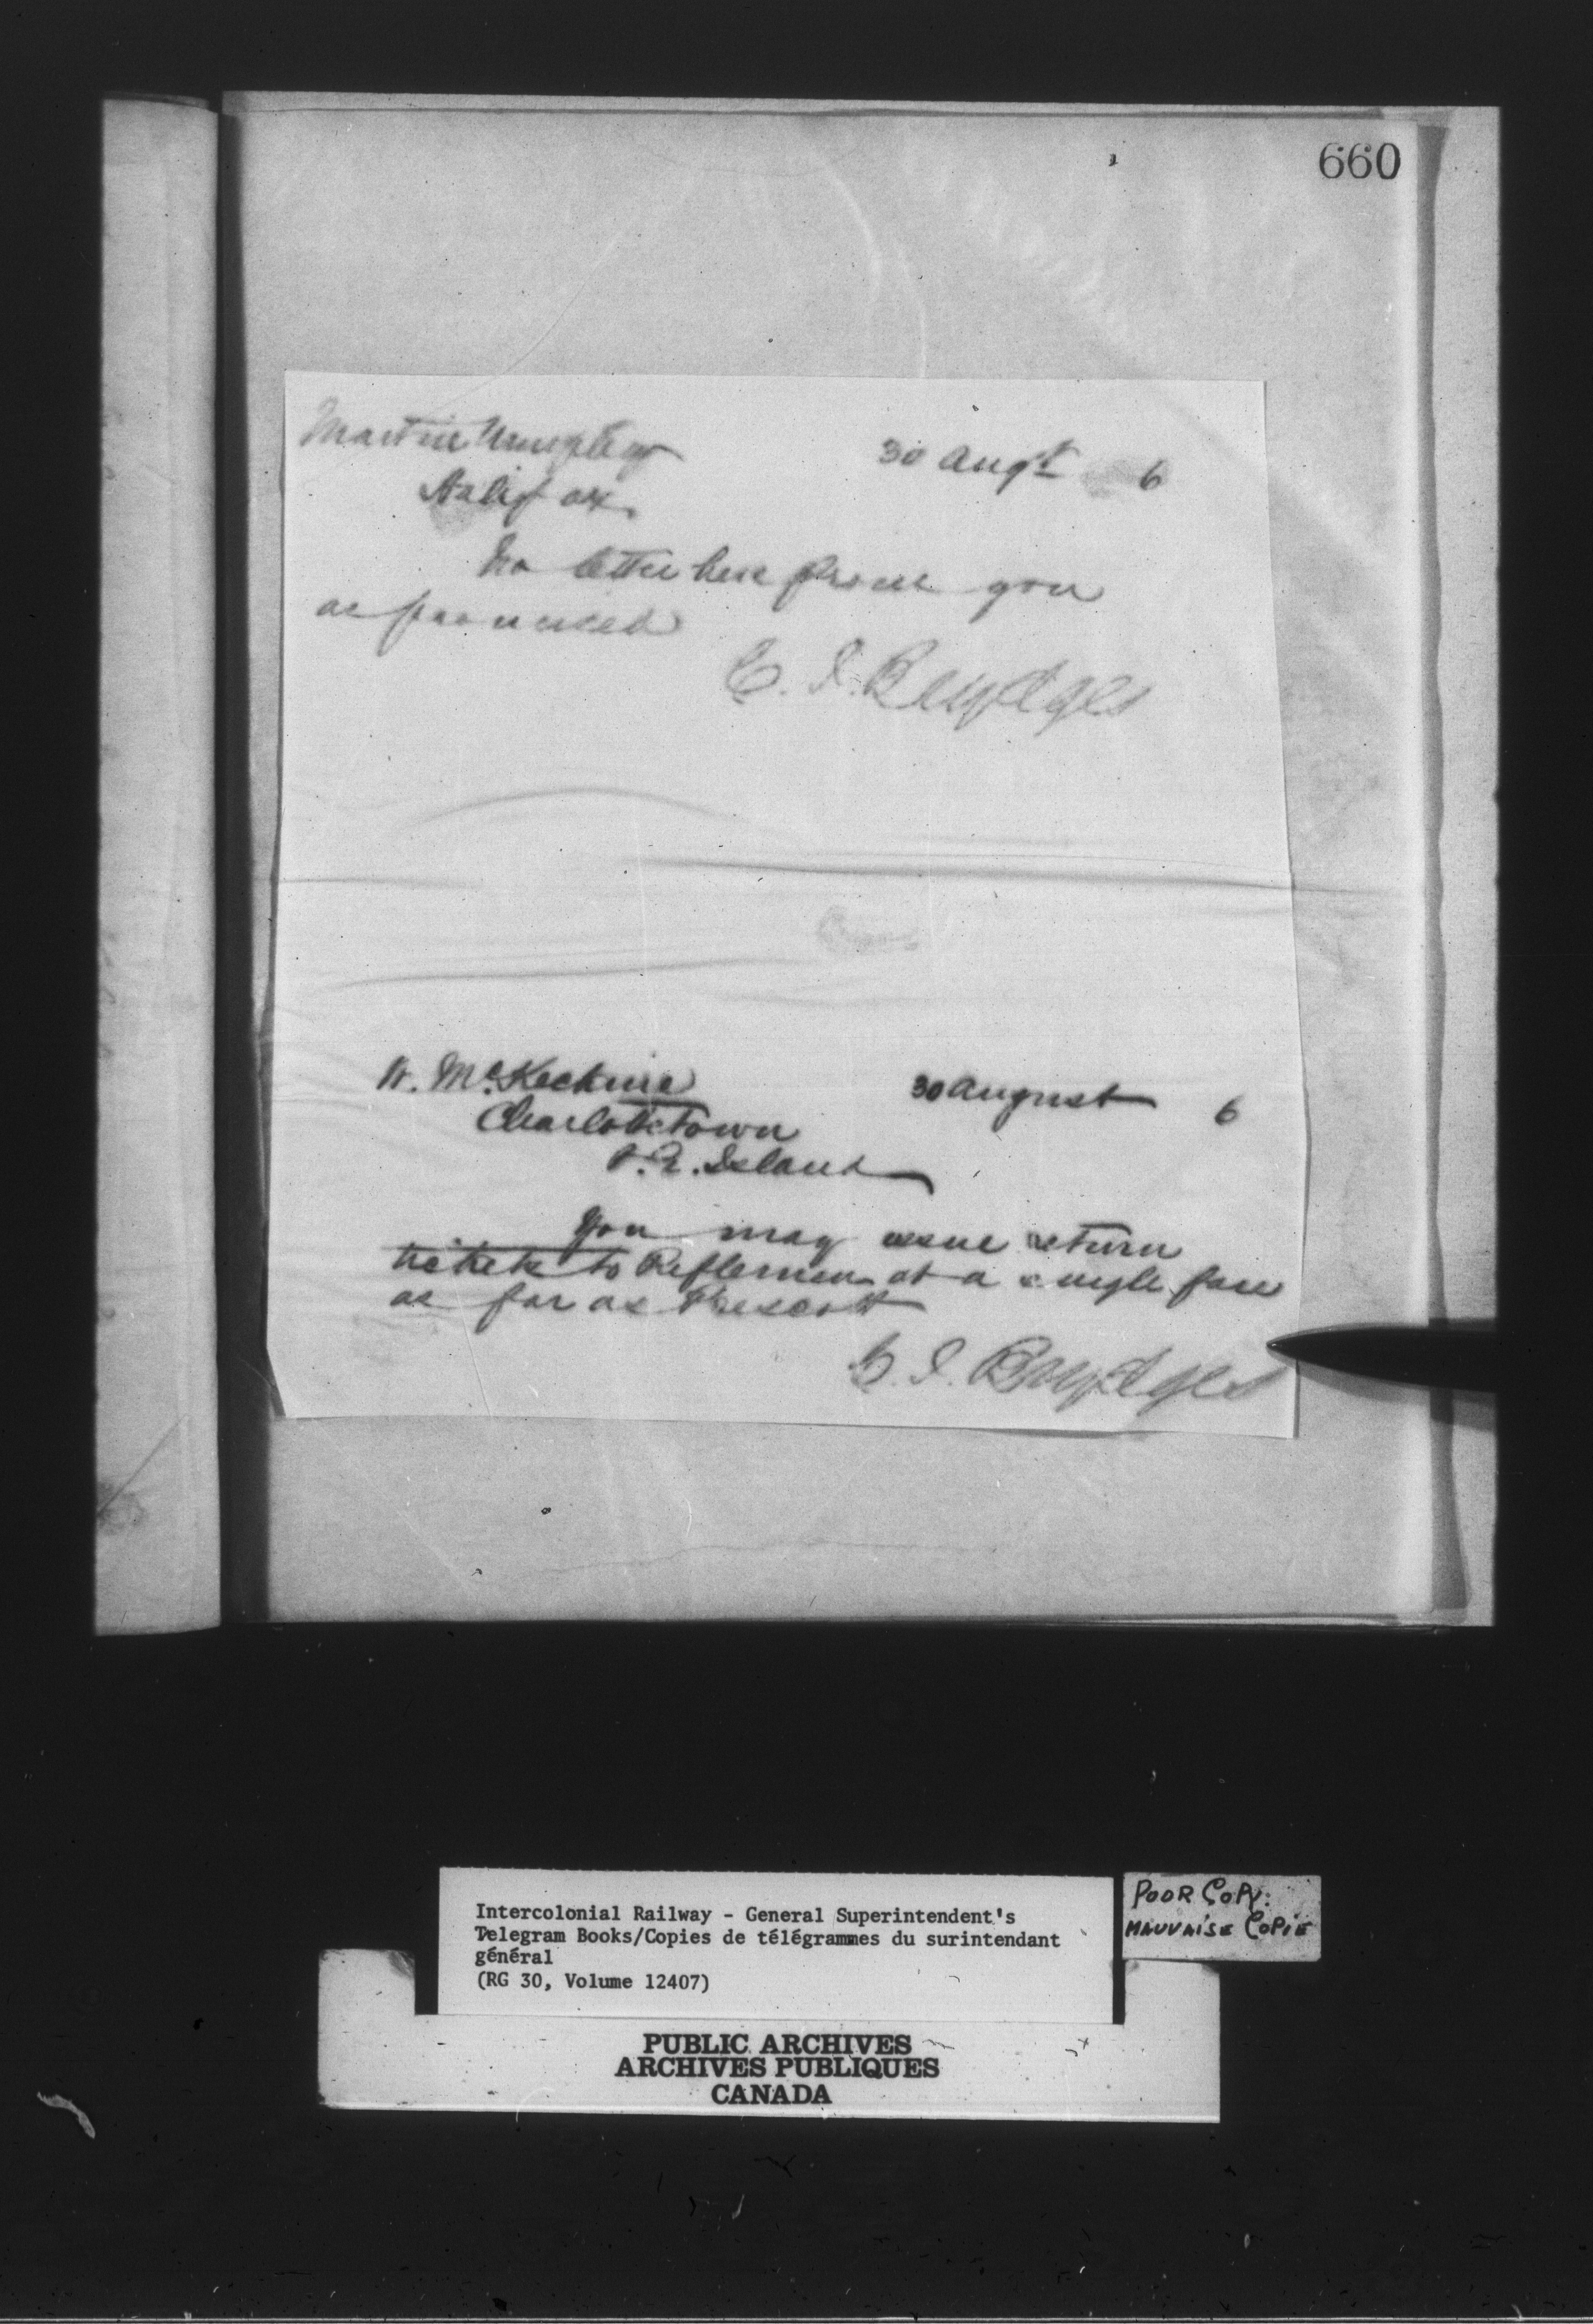 660
Martin Murphy 30 Augt 6
Halifax
No letter here from you
as promised
C. J. Brydges
W. McKechnie 30 August 6
Charlottetown
P. E. Island
You may issue return
tickets to Riflemen at a single fare
as far as Prescott
C. J. Brydges
Intercolonial Railway - General Superintendent's
Telegram Books/Copies de télégrammes du surintendant
général
(RG 30, Volume 12407)
POOR COPY:
MAUVAISE COPIE
PUBLIC ARCHIVES
ARCHIVES PUBLIQUES
CANADA